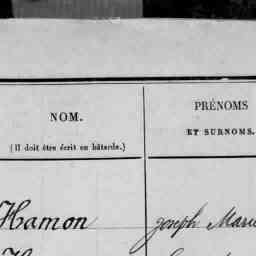 NOM.
PRÉNOMS
ET SURNOMS.
(Il doit être écrit en bâtarde.)
Hamon
Joseph Marie